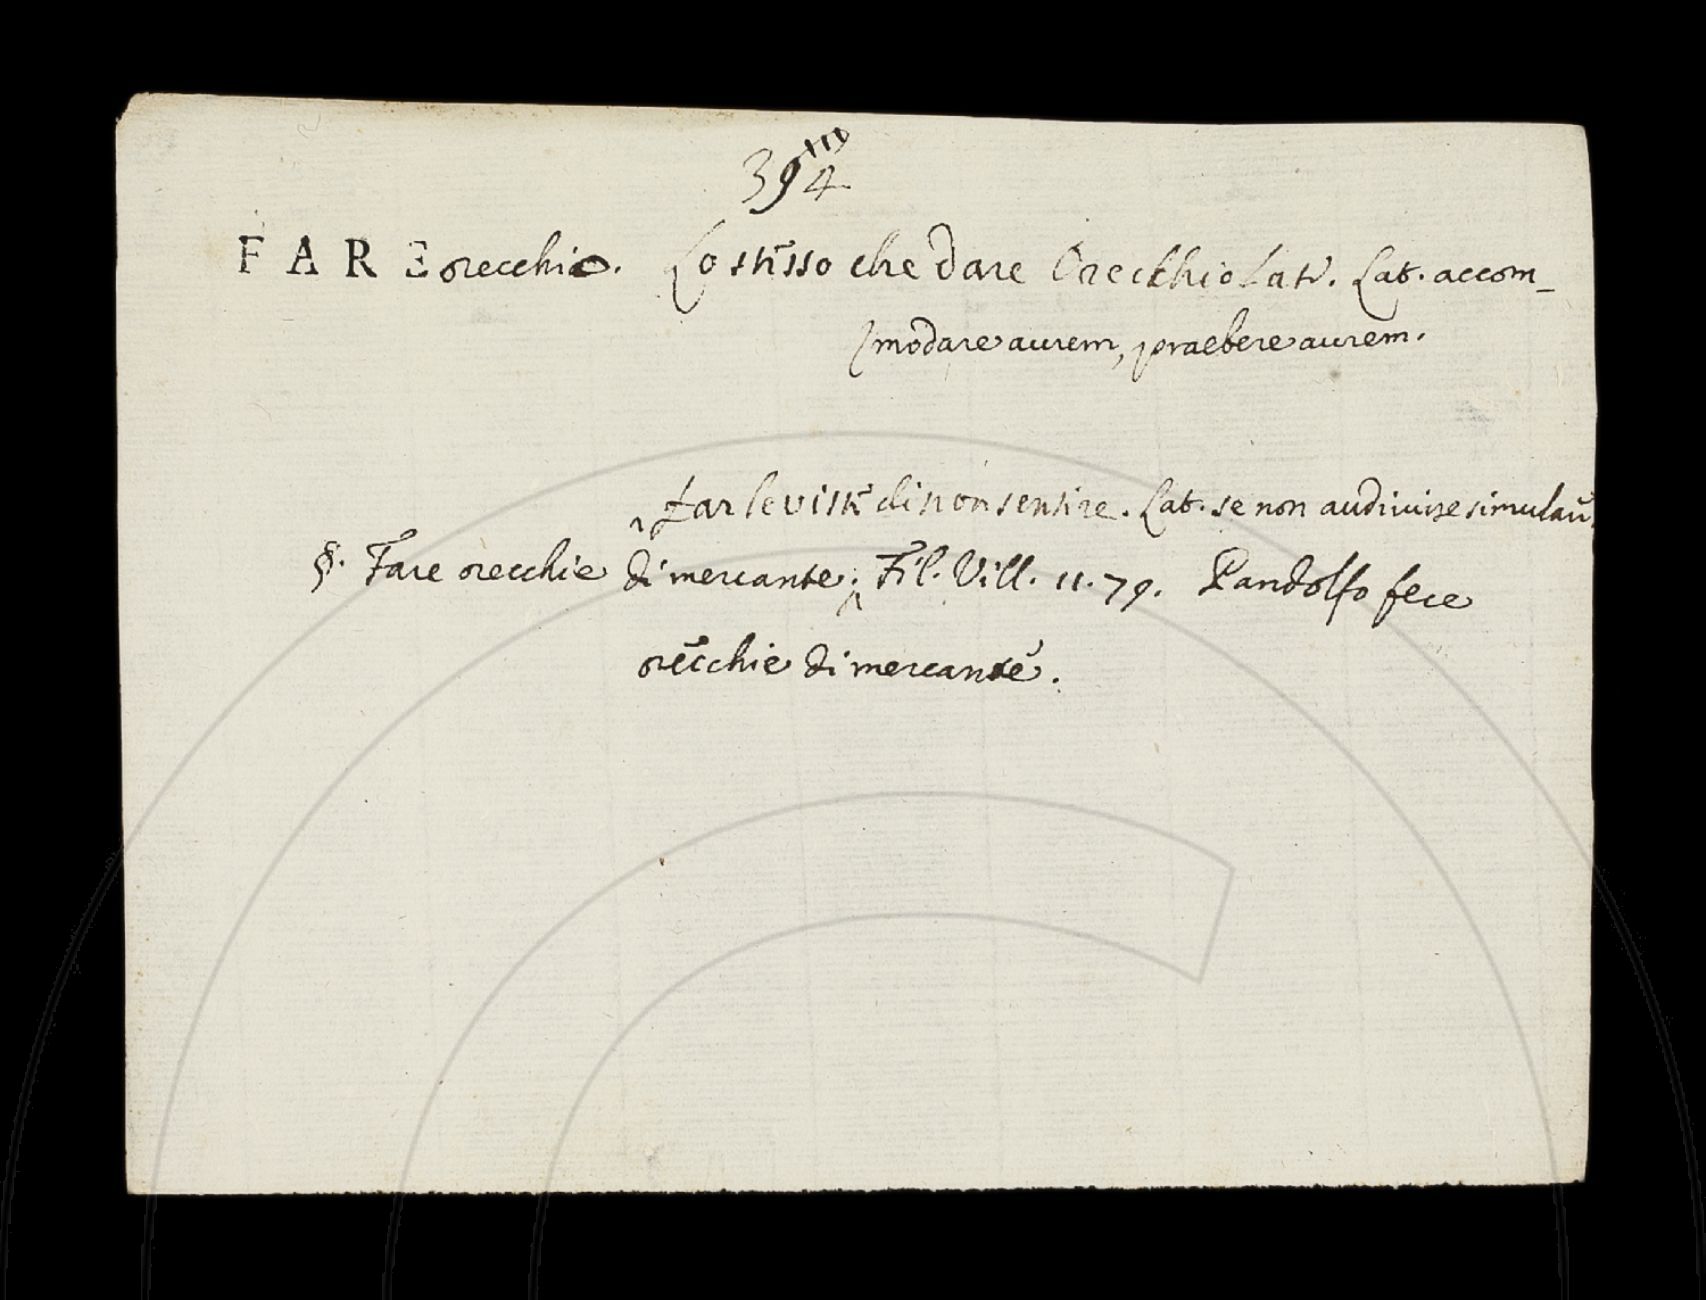 394
FARE orecchio. Lo stesso che dare Orecchio Lat. accom-
modare aurem, praebere aurem.
far le viste di non sentire. Lat. se non audivise simulav.
§. Fare orecchie di mercante; Fil. Vill. 11. 79. Pandolfo fece
orecchie di mercante.